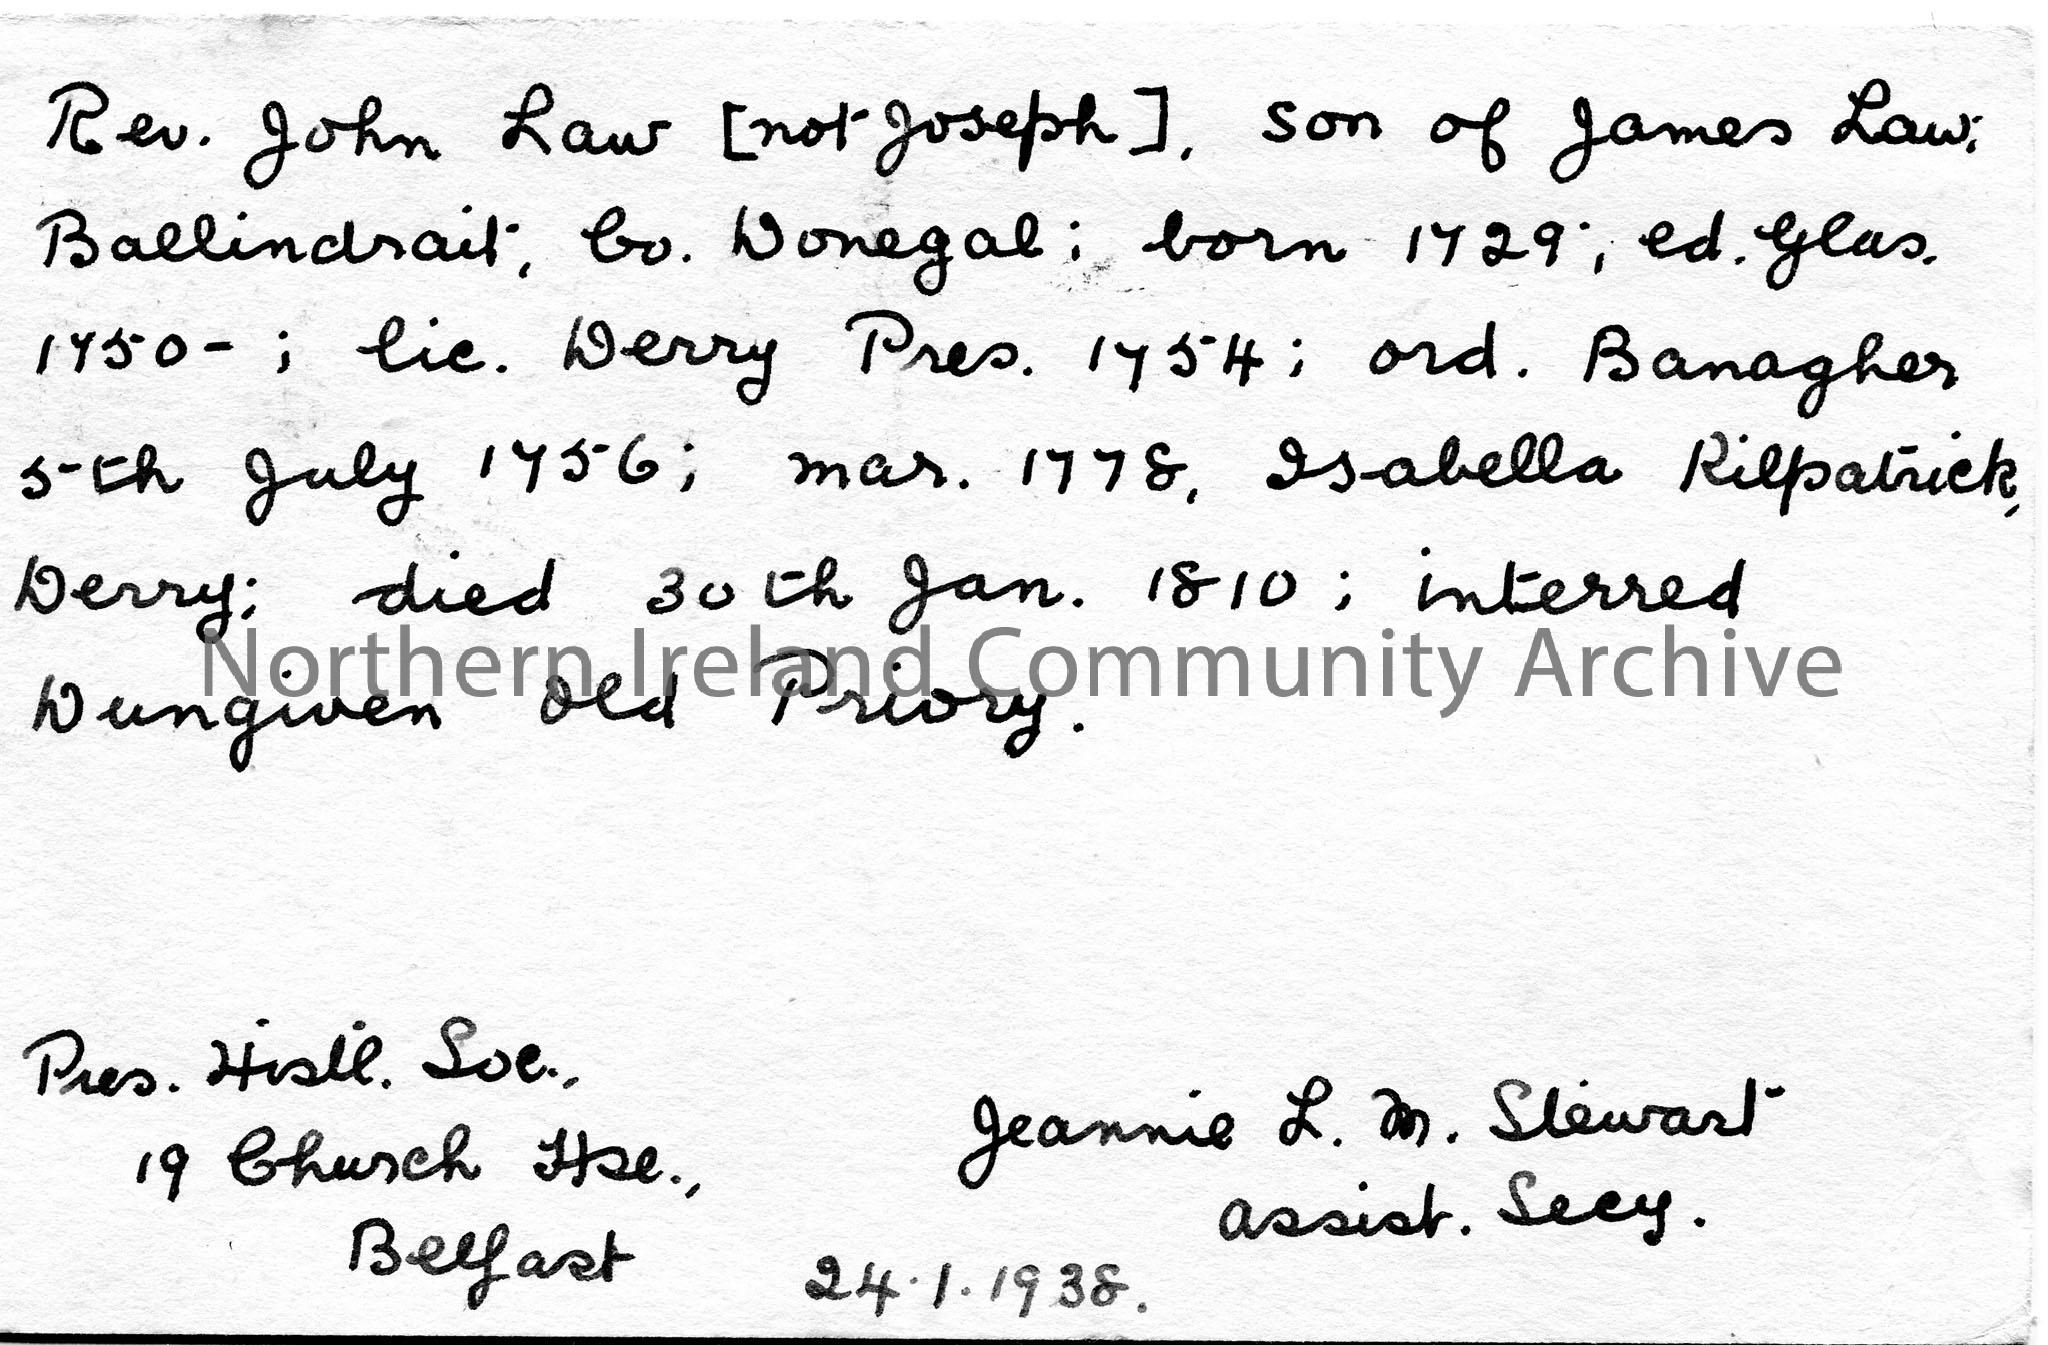 Rev. John Law [not Joseph], son of James Law,
Ballindrait, Co. Donegal; born 1729; ed. Glas.
1750- ; lic. Derry Pres. 1754; ord. Banagher
5th July 1756; mar. 1778, Isabella Kilpatrick,
Derry; died 30th Jan. 1810; interred
Northern Ireland Community Archive
Dungiven Old Priory.
Pres. Histl. Soc.,
19 Church Hse.,
Belfast
Jeannie L. M. Stewart
Assist. Secy.
24.1.1938.